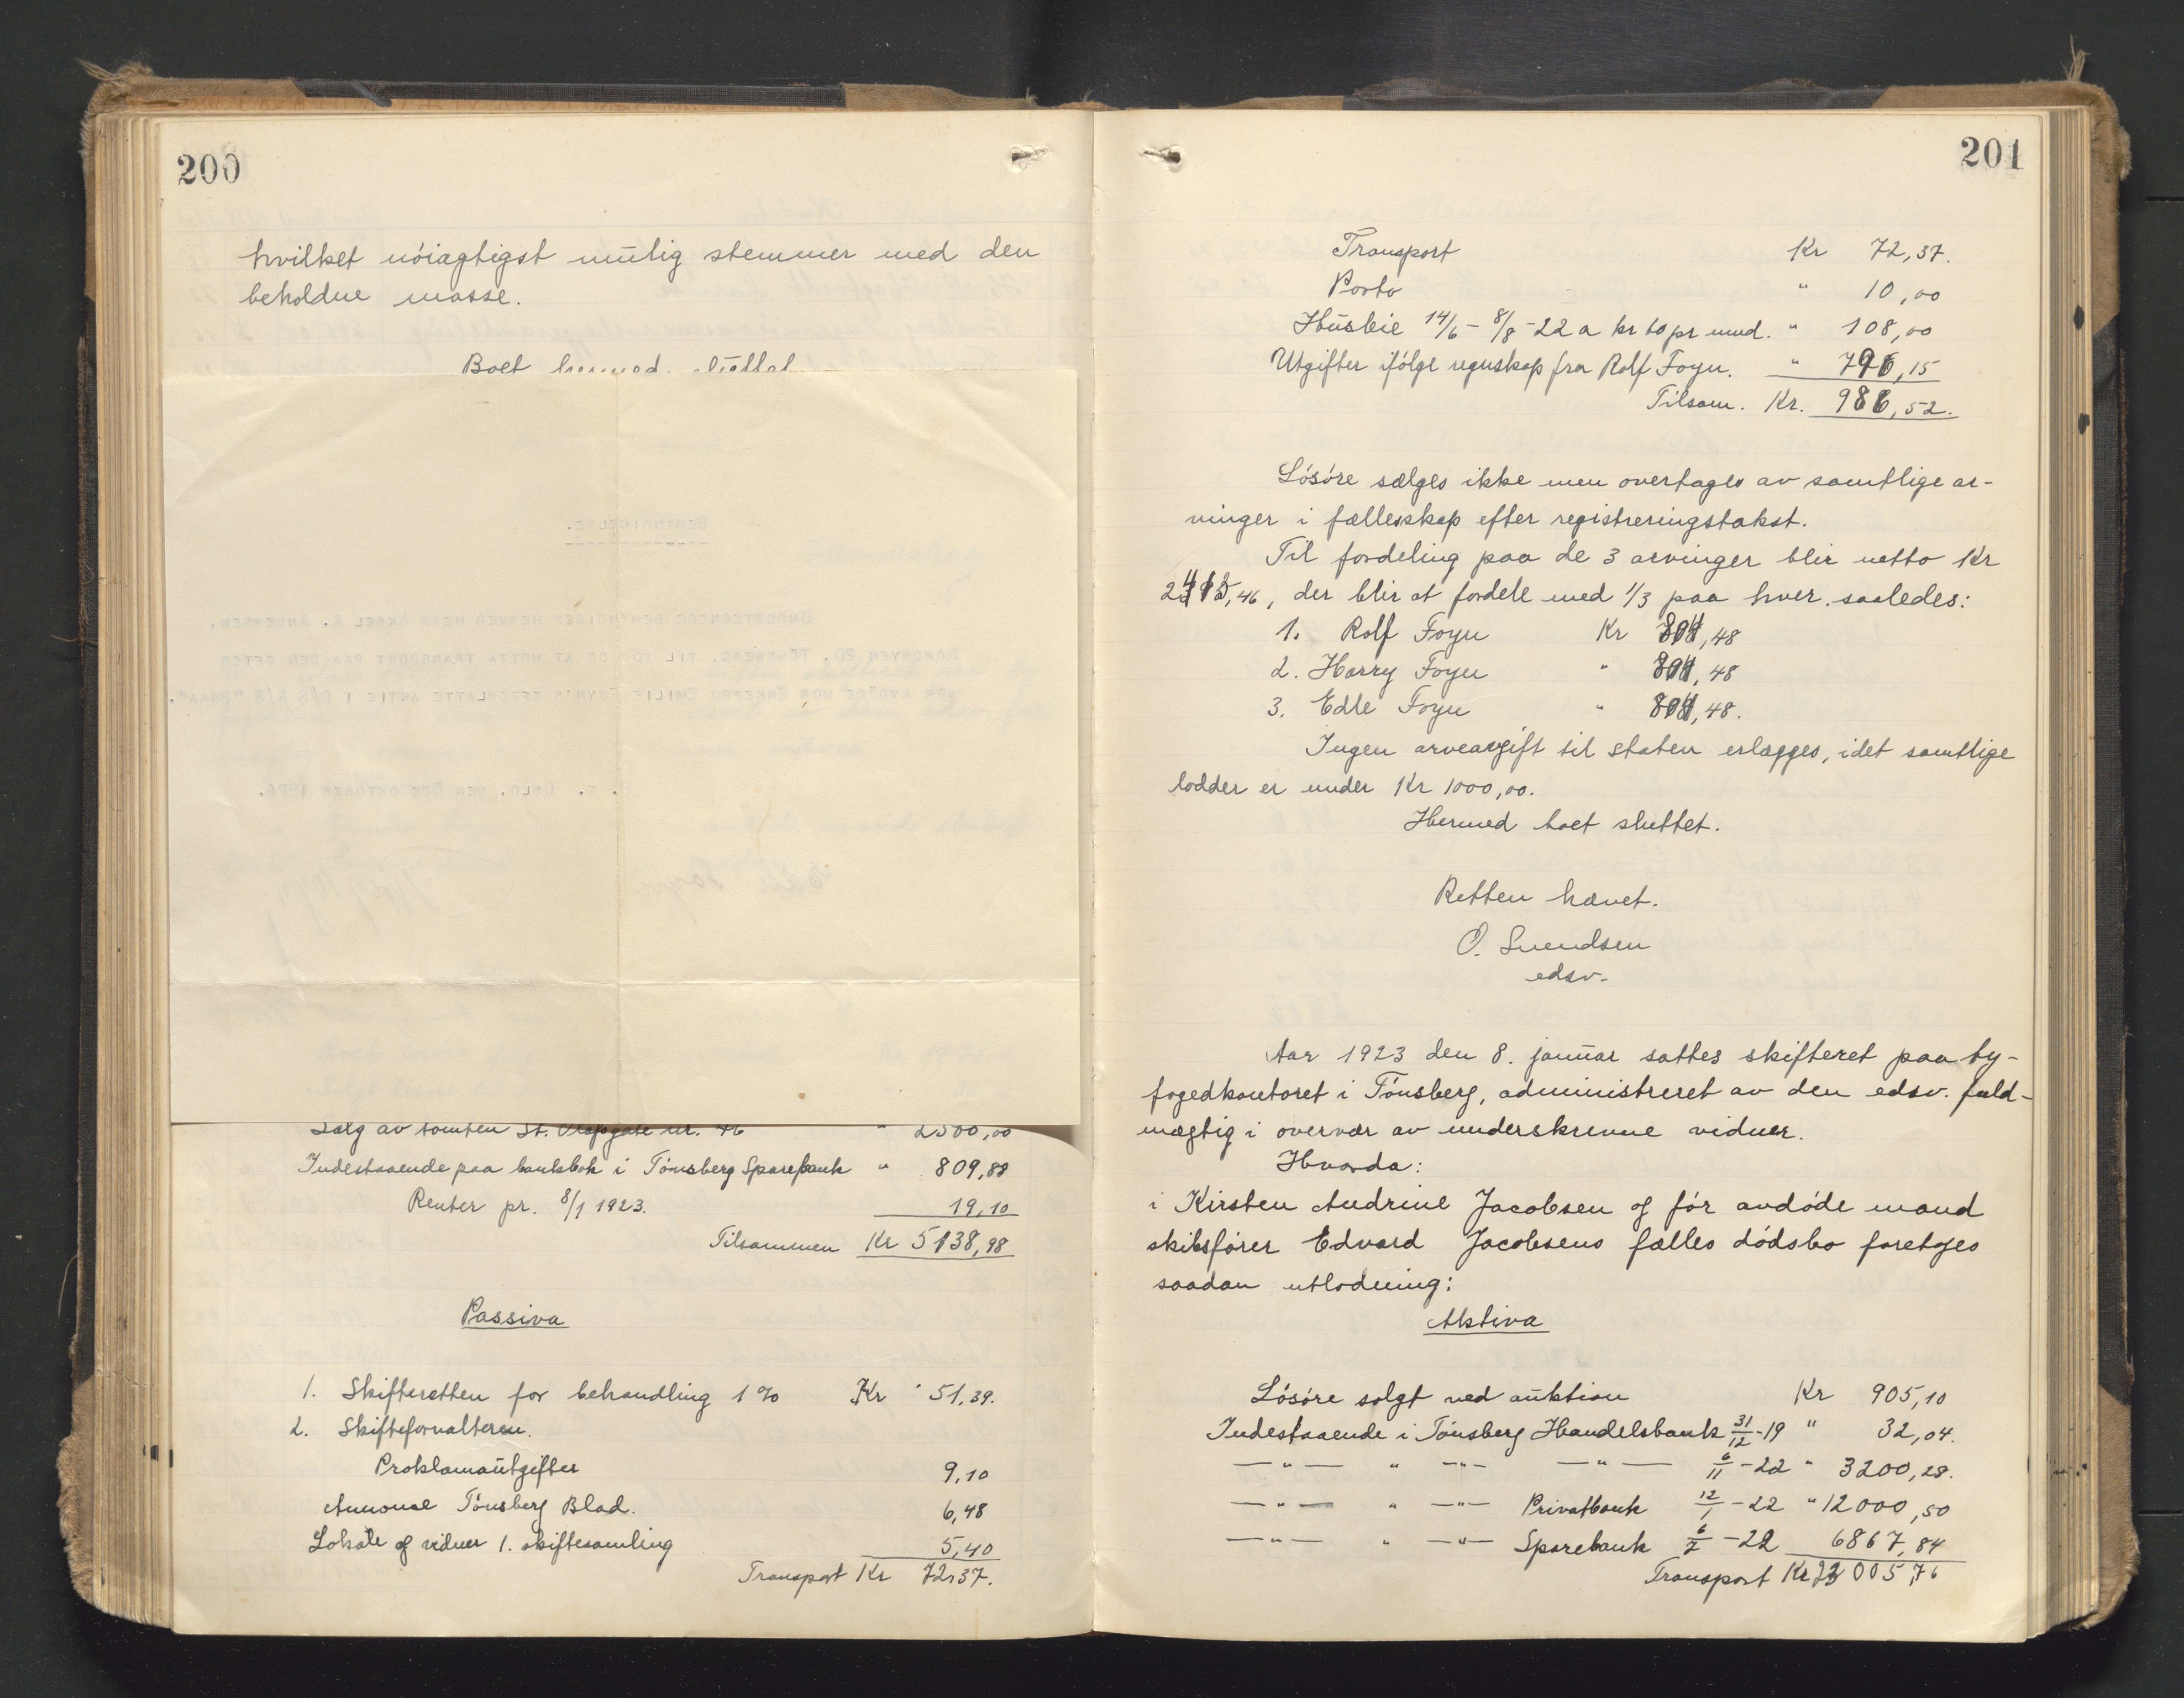 200
hvilket nöiagtigst mulig stemmer med den
beholdne masse.
Boet hermed sluttet
BEMYNDIGELSE.
UNDERTEGNEDE BEMYNDIGER HERVED HERR AKSEL A. ANDERSEN,
NORDBYEN 20, TÖNSBERG, TIL FOR OS AT MOTTA TRANSPORT PAA DEN EFTER
VOR AVDÖDE MOR ENKEFRU EMILIE FOYN'S EFTERLATTE AKTIE I D/S A/S
P. T. OSLO, DEN OKTOBER 1926.
Edle Foyn
Salg av tomten St. Olafsgate nr. 46 " 2500,00
Indestaaende paa bankbok i Tönsberg Sparebank " 809,88
Renter pr. 8/1 1923. 19,10
Tilsammen Kr 5138,98
Passiva
1. Skifteretten for behandling 1 % Kr 51,39.
2. Skifteforvalteren.
Proklamautgifter 9,10
Annonce Tönsberg Blad. 6,48
Lokale og vidner 1. skiftesamling 5,40
Transport Kr 72,37.
201
Transport Kr 72,37.
Porto " 10,00
Husleie 14/6 - 8/8 - 22 a kr 60 pr mnd. " 108,00
Utgifter ifölge regnskap fra Rolf Foyn. " 796,15
Tilsam. Kr. 986,52.
Lösöre sælges ikke men overtages av samtlige ar-
vinger i fællesskap efter registreringstakst.
Til fordeling paa de 3 arvinger blir netto Kr
2413,46, der blir at fordele med 1/3 paa hver, saaledes:
1. Rolf Foyn Kr 804,48
2. Harry Foyn " 804,48
3. Edle Foyn " 804,48.
Ingen arveavgift til staten erlægges, idet samtlige
lodder er under Kr 1000,00.
Hermed boet sluttet.
Retten hævet.
O. Svendsen
edsv.
Aar 1923 den 8. januar sattes skifteret paa by-
fogedkontoret i Tönsberg, administreret av den edsv. fuld-
mægtig i overvær av underskrevne vidner.
Hvorda:
i Kirsten Andrine Jacobsen ogför avdöde mand
skibsförer Edvard Jacobsens fælles dödsbo foretoges
saadan utlodning:
Aktiva
Lösöre solgt ved auktion Kr 905,10
Indestaaende i Tönsberg Handelsbank 31/12-19 " 32,04.
—"— " —"— —"— 6/11-22 " 3200,28.
—"— " —"— Privatbank 12/1-22 " 12000,50
—"— " —"— Sparebank 6/2-22 6867,84
Transport Kr 23005,76